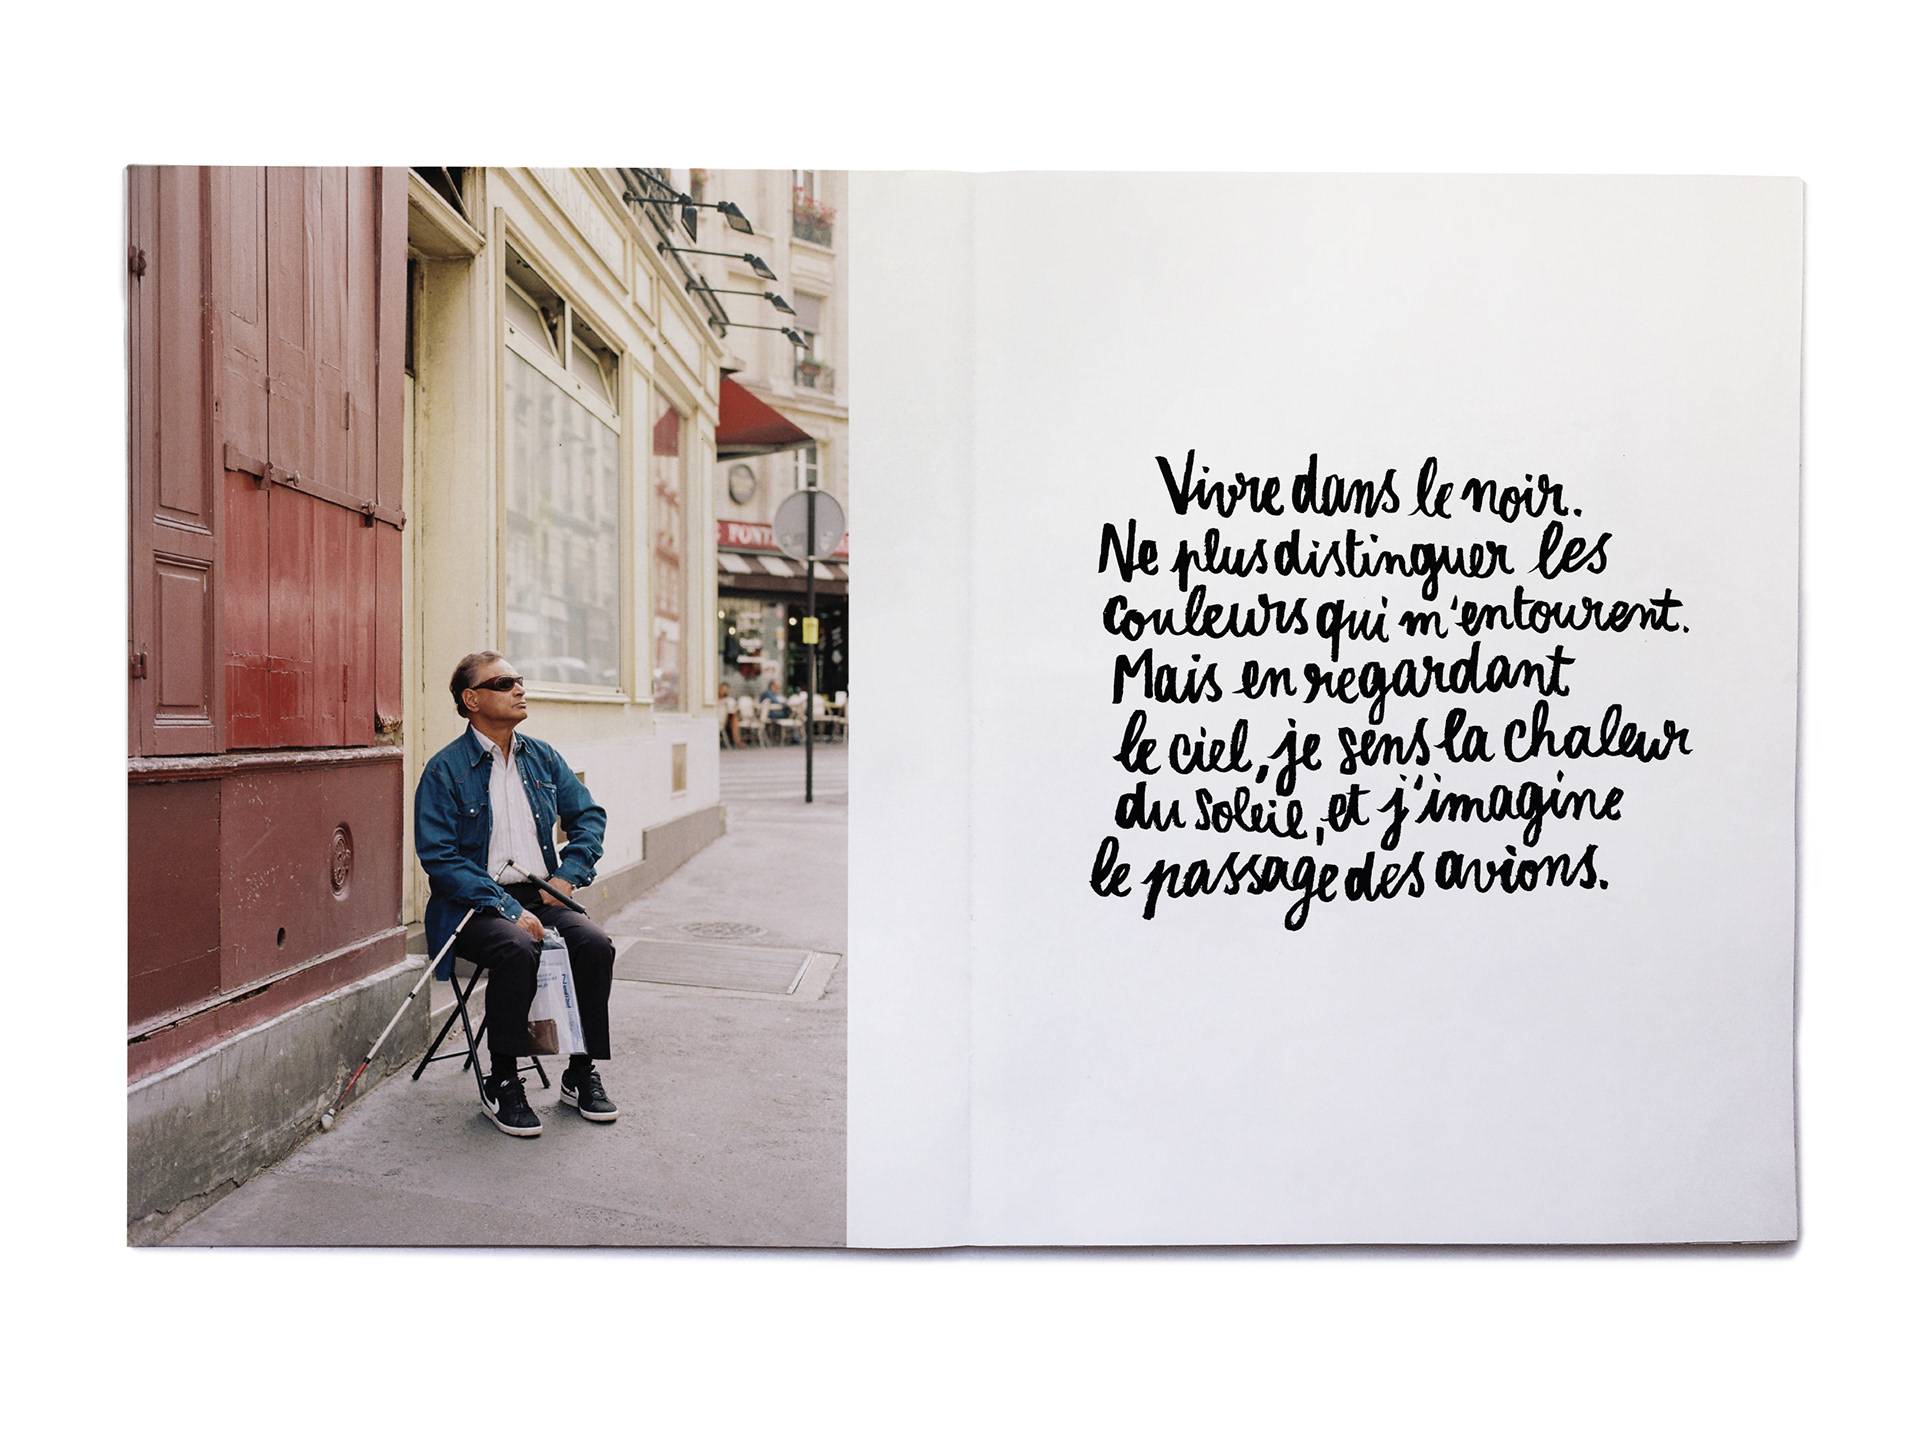 FONT
Vivre dans le noir.
Ne plus distinguer les
couleurs qui m'entourent.
Mais en regardant
le ciel, je sens la chaleur
du soleil, et j'imagine
le passage des avions.